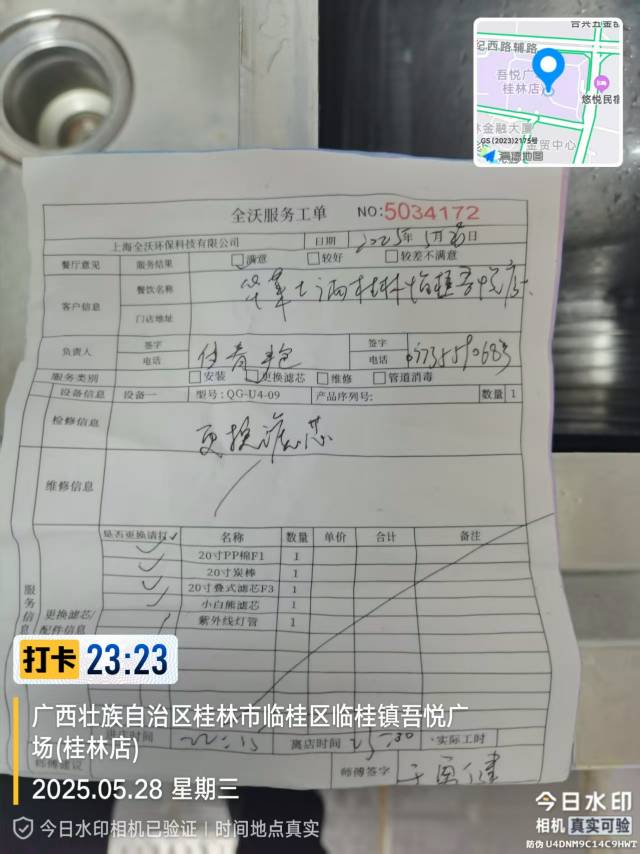 合兴五金
纪西路辅路
吾悦广
桂林店
悠悦民宿
林金融大厦
GS(2023)2175号
金贸中心
高德地图
全沃服务工单 NO:5034172
上海全沃环保科技有限公司 日期 2025年5月 日
餐厅意见 服务结果 满意 较好 较差不满意
客户信息 餐饮名称
门店地址
负责人 签字 签字
电话 电话 07735590683
服务类别 安装 更换滤芯 维修 管道消毒
设备信息 设备一 型号:QG-U4-09 产品序列号: 数量 1
检修信息 更换滤芯
维修信息
是否更换请打✓ 名称 数量 单价 合计 备注
20寸PP棉F1 1
20寸炭棒 1
20寸叠式滤芯F3 1
小白熊滤芯 1
紫外线灯管 1
服务信息
更换滤芯/
配件信息
打卡 23:23
广西壮族自治区桂林市临桂区临桂镇吾悦广
场(桂林店)
进店时间 22:15 离店时间 23:30 实际工时
师傅建议 师傅签字
2025.05.28 星期三
今日水印相机已验证 时间地点真实
今日水印
相机 真实可验
防伪 U4DNM9C14C9HWT